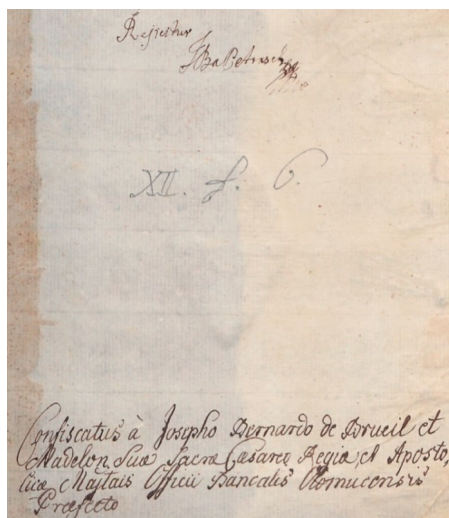 Rejicitur
XII. f. 6.
Confiscatus à Josepho Bernardo de Brueil et
Madelon Suæ Sacræ Cæsareo Regiæ, et Aposto,
licæ Majtais Officii Bancalis Olomucensis
Præfecto